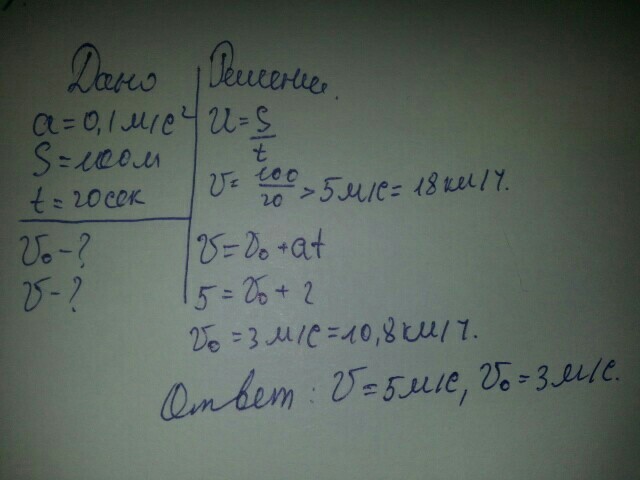 Дано
a = 0,1 м/с²
S = 100 м
t = 20 сек
v₀ - ?
v - ?
Решение.
v = S/t
v = 100/20 > 5 м/с = 18 км/ч.
v = v₀ + at
5 = v₀ + 2
v₀ = 3 м/с = 10,8 км/ч.
Ответ: v = 5 м/с, v₀ = 3 м/с.